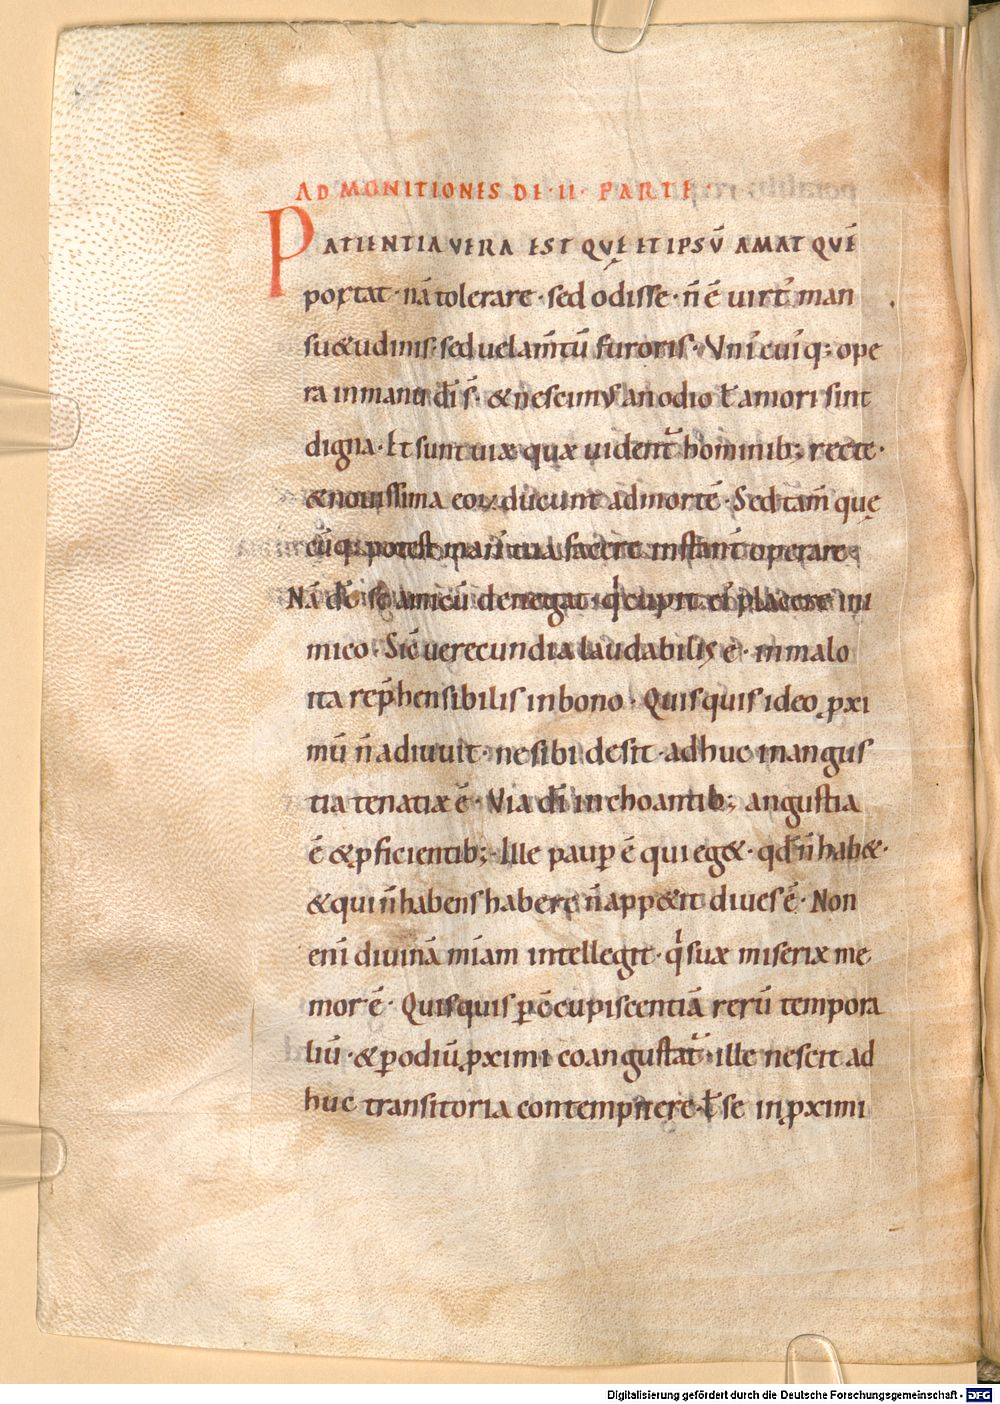 AD MONITIONES DE · II · PARTE ·
PATIENTIA VERA EST QVĘ ET IPSV̄ AMAT QVĒ
portat · nā tolerare · sed odisse · n̄ ē uirt᷒ man
su&udinis · sed uelam̄tū furoris · Vni᷒cui᷒q; ope
ra in manu dī s̄ · & nescimus an odio ł amori sint
digna · Et sunt uiæ quæ uident᷑ hominib; recte ·
& nouissima eoꝝ ducunt ad mortē · Sed tam̄ quę
cūq; potest man᷒ tua facere instant̄ operare
Nā dē se amicū denegat · q̇ cupit ei᷒ placere ini
mico · Sic̄ uerecundia laudabilis ē · in malo
ita rep̄hensibilis in bono · Quisquis ideo ꝓxi
mū n̄ adiuuit · ne sibi desit · adhuc in angus
tia tenatiæ ē · Via dī inchoantib; angustia
ē & ꝑficientib; · Ille pauꝑ ē qui eg& · qd̄ n̄ hab& ·
& qui n̄ habens habere n̄ app&it diues ē · Non
eni̅ diuinā mīam intellegit · q̇ suæ miseriæ me
mor ē · Quisquis ꝑ c̄cupiscentiā rerū tempora
liū · & ꝑ odiū ꝓximi coangustat᷑ · ille nescit ad
huc transitoria contempnere · ł se in ꝓximi
Digitalisierung gefördert durch die Deutsche Forschungsgemeinschaft - DFG